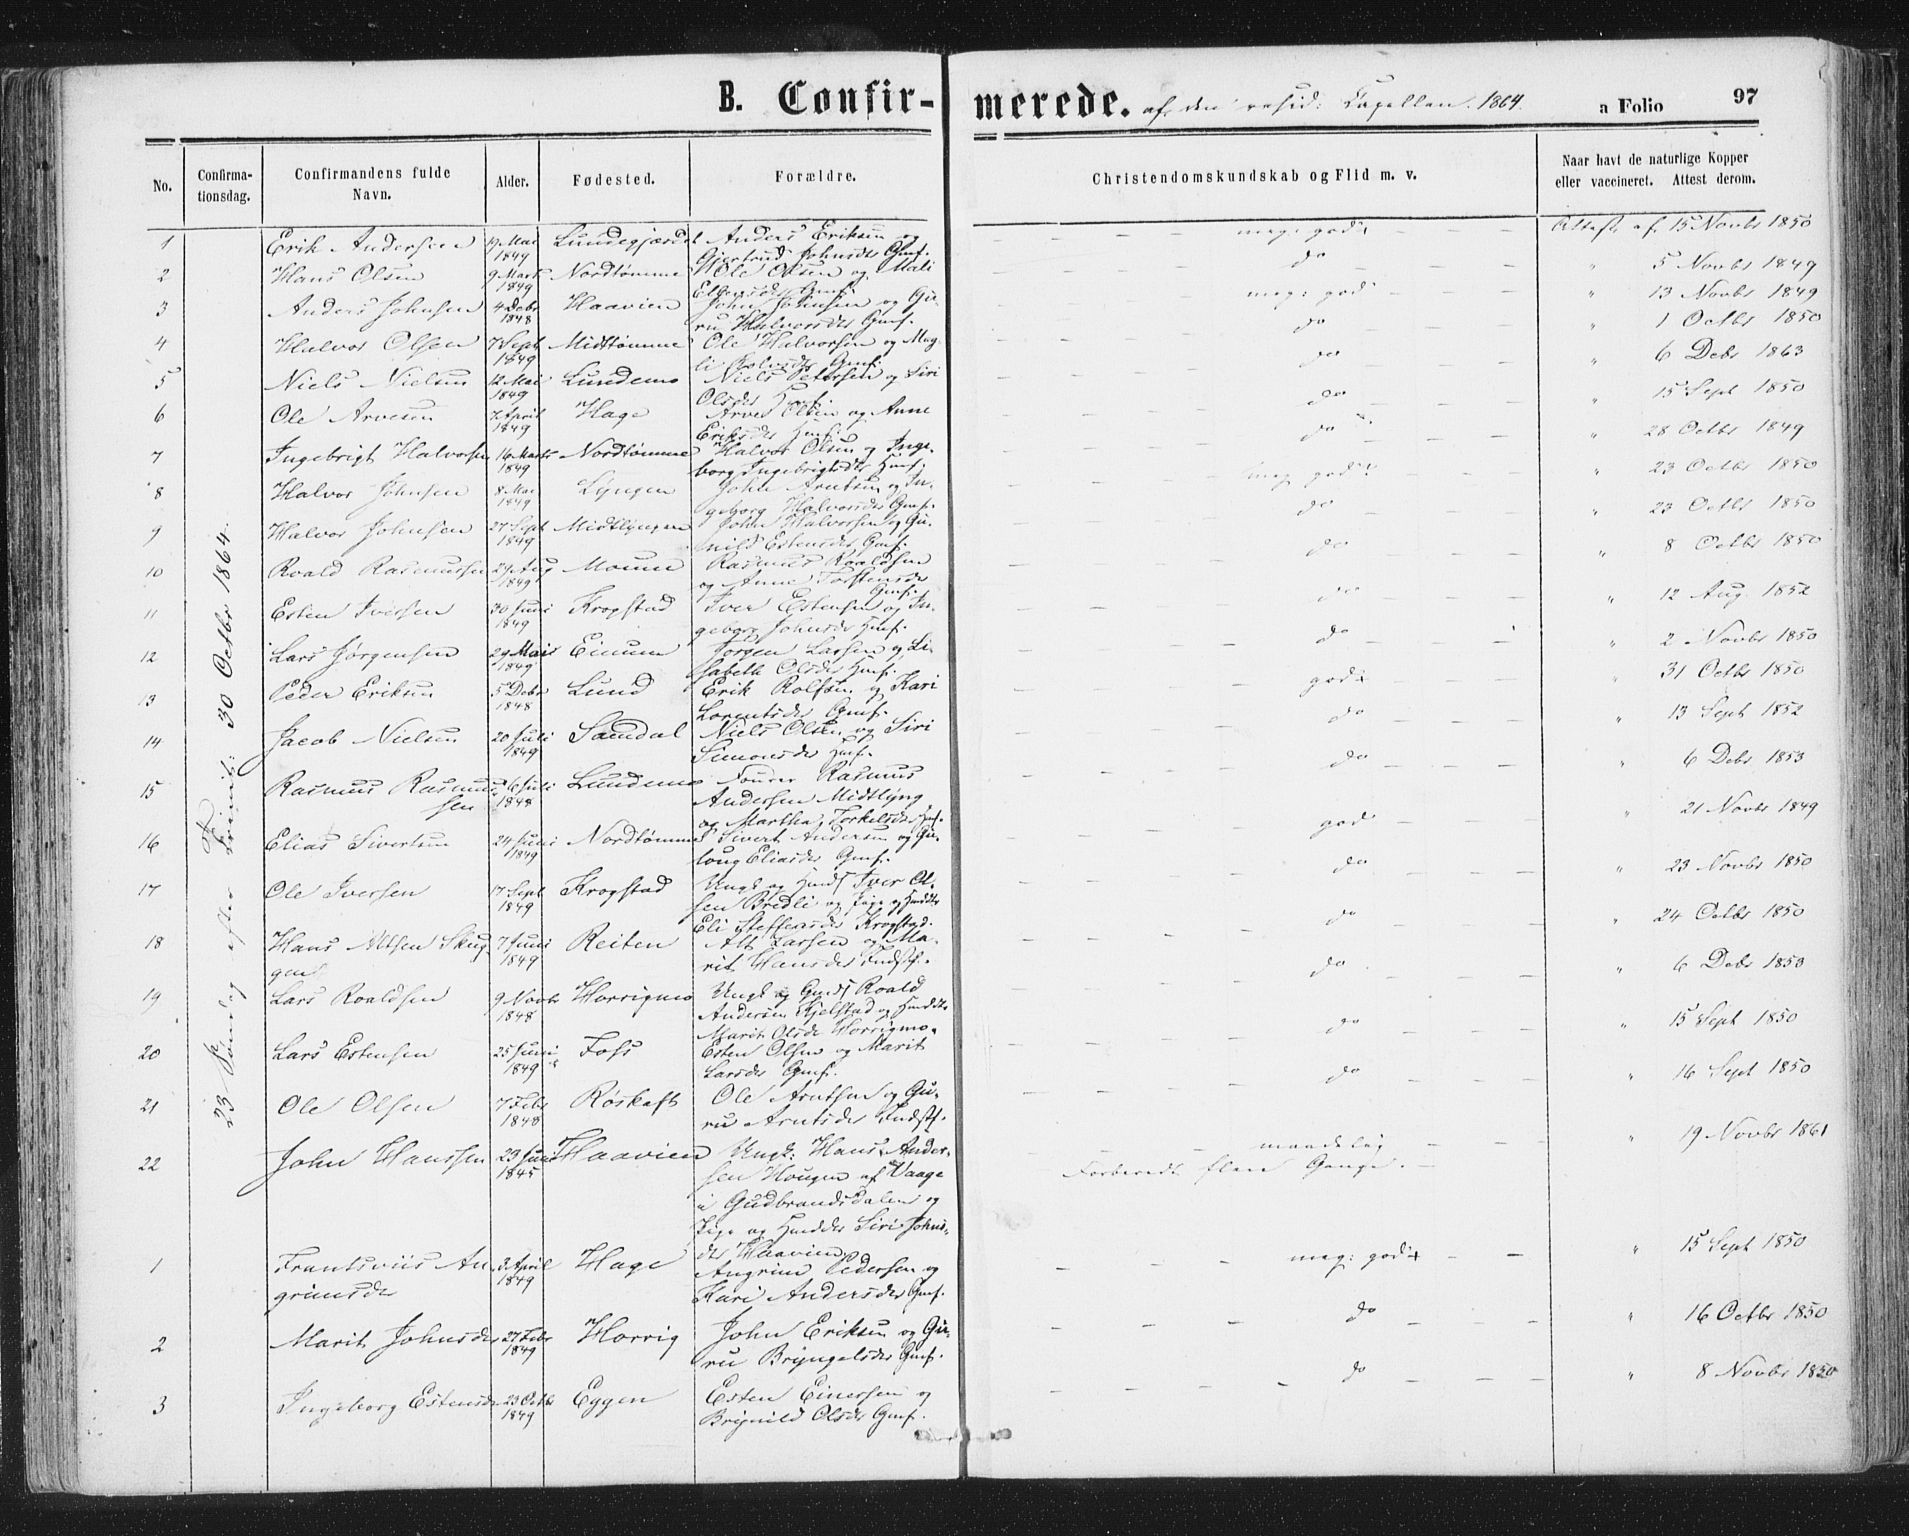 B. Confirmerede. af den resid: Capellan. 1864. a Folio 97
No. Confirmationsdag. Confirmandens fulde Navn. Alder. Fødested. Forældre. Christendomskundskab og Flid m. v. Naar havt de naturlige Kopper eller vaccineret. Attest derom.
23 Søndag efter Trinit: 30 Octbr 1864.
1 Erik Andersen 19 Mai 1849 Lundegjærdet Anders Eriksen og Gjertrud Johnsdr Gmf. – – – meg: godt – – – Attest af 15 Novbr 1850
2 Hans Olsen 9 Marts 1849 Nordtømme Ole Olsen og Mali Gmf. do " 5 Novbr 1849
3 Anders Johnsen 4 Debr 1848 Haavien John Johnsen og Guru Halvorsdr Gmf. meg: godt " 13 Novbr 1849
4 Halvor Olsen 7 Sept 1849 Midttømme Ole Halvorsen og Gmf. do " 1 Octbr 1850
5 Niels Nielsen 12 Mai 1849 Lundemo Niels Petersen og Siri Olsdr Hmf. do " 6 Debr 1863
6 Ole Arvesen 7 April 1849 Hage Arve Olsen og Anne Eriksdr Hmf. do " 15 Sept 1850
7 Ingebrigt Halvorsen 16 Marts 1849 Nordtømme Halvor Olsen og Ingeborg Ingebrigtsdr Hmf. do " 28 Octbr 1849
8 Halvor Johnsen 8 Mai 1849 Lyngen John Arntsen og Ingeborg Halvorsdr Gmf. meg godt " 23 Octbr 1850
9 Halvor Johnsen 27 Sept 1849 Midtlyngen John Halvorsen og Gunild Estensdr Gmf. do " 23 Octbr 1850
10 Roald Rasmussen 24 Aug 1849 Moune Rasmus Roaldsen og Anne Torstensdr Gmf. do " 8 Octbr 1850
11 Esten Iversen 30 Juni 1849 Krogstad Iver Estensen og Ingeborg Johnsdr Hmf. do " 12 Aug. 1852
12 Lars Jørgensen 29 Mai 1849 Einum Jørgen Larsen og Lisabeth Olsdr Hmf. do " 2 Novbr 1850
13 Peder Eriksen 5 Debr 1848 Lund Erik Rolfsen og Kari Lorentsdr Gmf. godt " 31 Octbr 1850
14 Jacob Nielsen 20 Juli 1849 Samdal Niels Olsen og Siri Simonsdr Hmf. do " 13 Sept 1852
15 Rasmus Rasmussen 6 Juli 1848 Lundemo Rasmus Andersen Midtlyng og Martha Torkelsdr Hmf. do " 6 Debr 1853
16 Elias Sivertsen 24 Juni 1849 Nordtømme Sivert Andersen og Guloug Eliasdr Gmf. godt " 21 Novbr 1849
17 Ole Iversen 17 Sept 1849 Krogstad Ungk og Hmds Iver Olsen Bredli og Pige og Hmddtr Eli Steffensdr Krogstad. do " 23 Novbr 1850
18 Hans Altsen Skuggen 7 Juni 1849 Reiten Alt Larsen og Marit Hansdr Indstf. do " 24 Octbr 1850
19 Lars Roaldsen 9 Novbr 1848 Horrigmo Ungk og Gmds Roald Andersen Kjelstad og Hmddtr Marit Olsdr Horrigmo. do " 6 Debr 1850
20 Lars Estensen 25 Juni 1849 Foss Esten Olsen og Marit Larsdr Gmf. do " 15 Sept 1850
21 Ole Olsen 7 Febr 1848 Røskaft Ole Arntsen og Guru Arntsdr Indstf. do " 16 Sept 1850
22 John Hanssen 23 Juni 1845 Haavien Ungk: Hans Andersen Hougen af Vaage i Gudbrandsdalen og Pige og Hmddtr Siri Johnsdr Haavien maadelig Forberedt flere Gange. " 19 Novbr 1861
1 Frantsviis Angrimsdr 3 April 1849 Hage Angrim Pedersen og Kari Andersdr Gmf. meg: godt " 15 Sept 1850
2 Marit Johnsdr 27 Febr 1849 Horrig John Eriksen og Guru Bryngelsdr Gmf. do " 16 Octbr 1850
3 Ingeborg Estensdr 23 Octbr 1849 Eggen Esten Einersen og Brynild Olsdr Gmf. do " 8 Novbr 1850